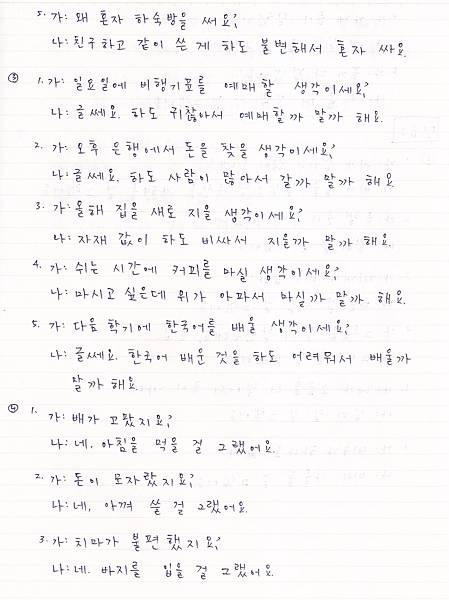 5. 가: 왜 혼자 하숙방을 써요?
나: 친구하고 같이 쓴 게 하도 불변해서 혼자 싸요.
③ 1. 가: 일요일에 비행기표를 예매할 생각이세요?
나: 글쎄요. 하도 귀찮아서 예매할까 말까 해요.
2. 가: 오후 은행에서 돈을 찾을 생각이세요?
나: 글쎄요. 하도 사람이 많아서 갈까 말까 해요.
3. 가: 올해 집을 새로 지을 생각이세요?
나: 자재 값이 하도 비싸서 지을까 말까 해요.
4. 가: 쉬는 시간에 커피를 마실 생각이세요?
나: 마시고 싶은데 위가 아파서 마실까 말까 해요.
5. 가: 다음 학기에 한국어를 배울 생각이세요?
나: 글쎄요. 한국어 배운 것을 하도 어려워서 배울까
말까 해요.
④ 1. 가: 배가 고팠지요?
나: 네. 아침을 먹을 걸 그랬어요.
2. 가: 돈이 모자랐지요?
나: 네, 아껴 쓸 걸 그랬어요.
3. 가: 치마가 불편했지요?
나: 네. 바지를 입을 걸 그랬어요.